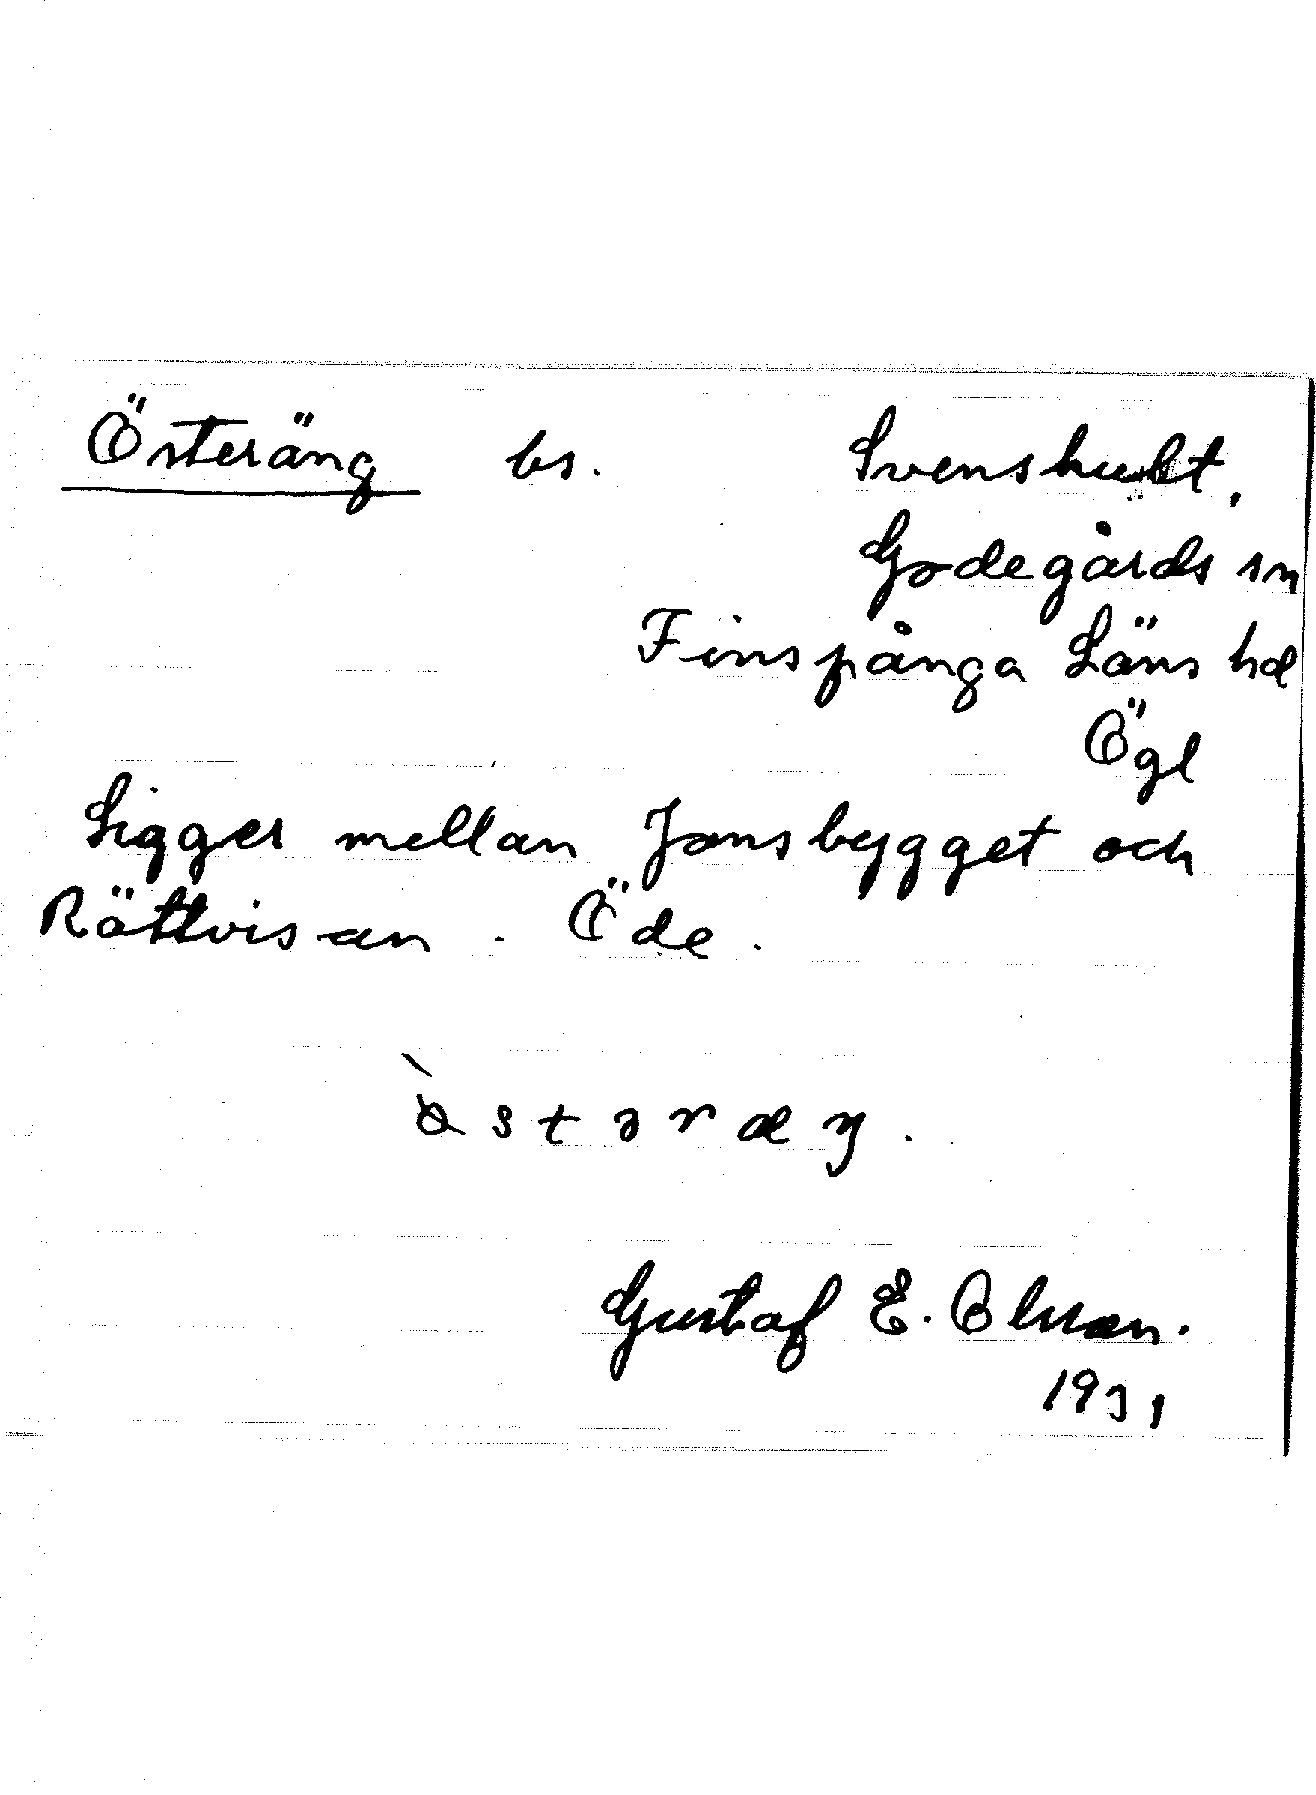 Österäng bs. Svenshult,
Godegårds sn
Finspånga Läns hd
Ögl
Ligger mellan Jonsbygget och
Rättvisan. Öde.
Gustaf E. Olsson.
1931